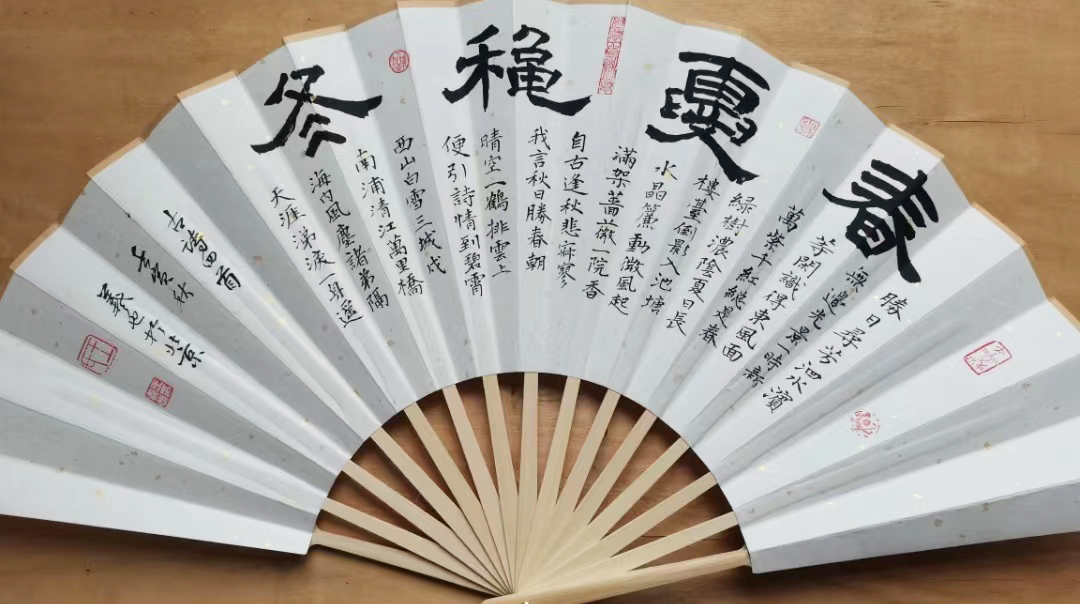 春
勝日尋芳泗水濱
無邊光景一時新
等閑識得東風面
萬紫千紅總是春
夏
綠樹濃陰夏日長
樓臺倒影入池塘
水晶簾動微風起
滿架薔薇一院香
穐
自古逢秋悲寂寥
我言秋日勝春朝
晴空一鶴排雲上
便引詩情到碧霄
冬
西山白雪三城戍
南浦清江萬里橋
海內風塵諸弟隔
天涯涕淚一身遙
古詩四首
壬寅秋
義於北京